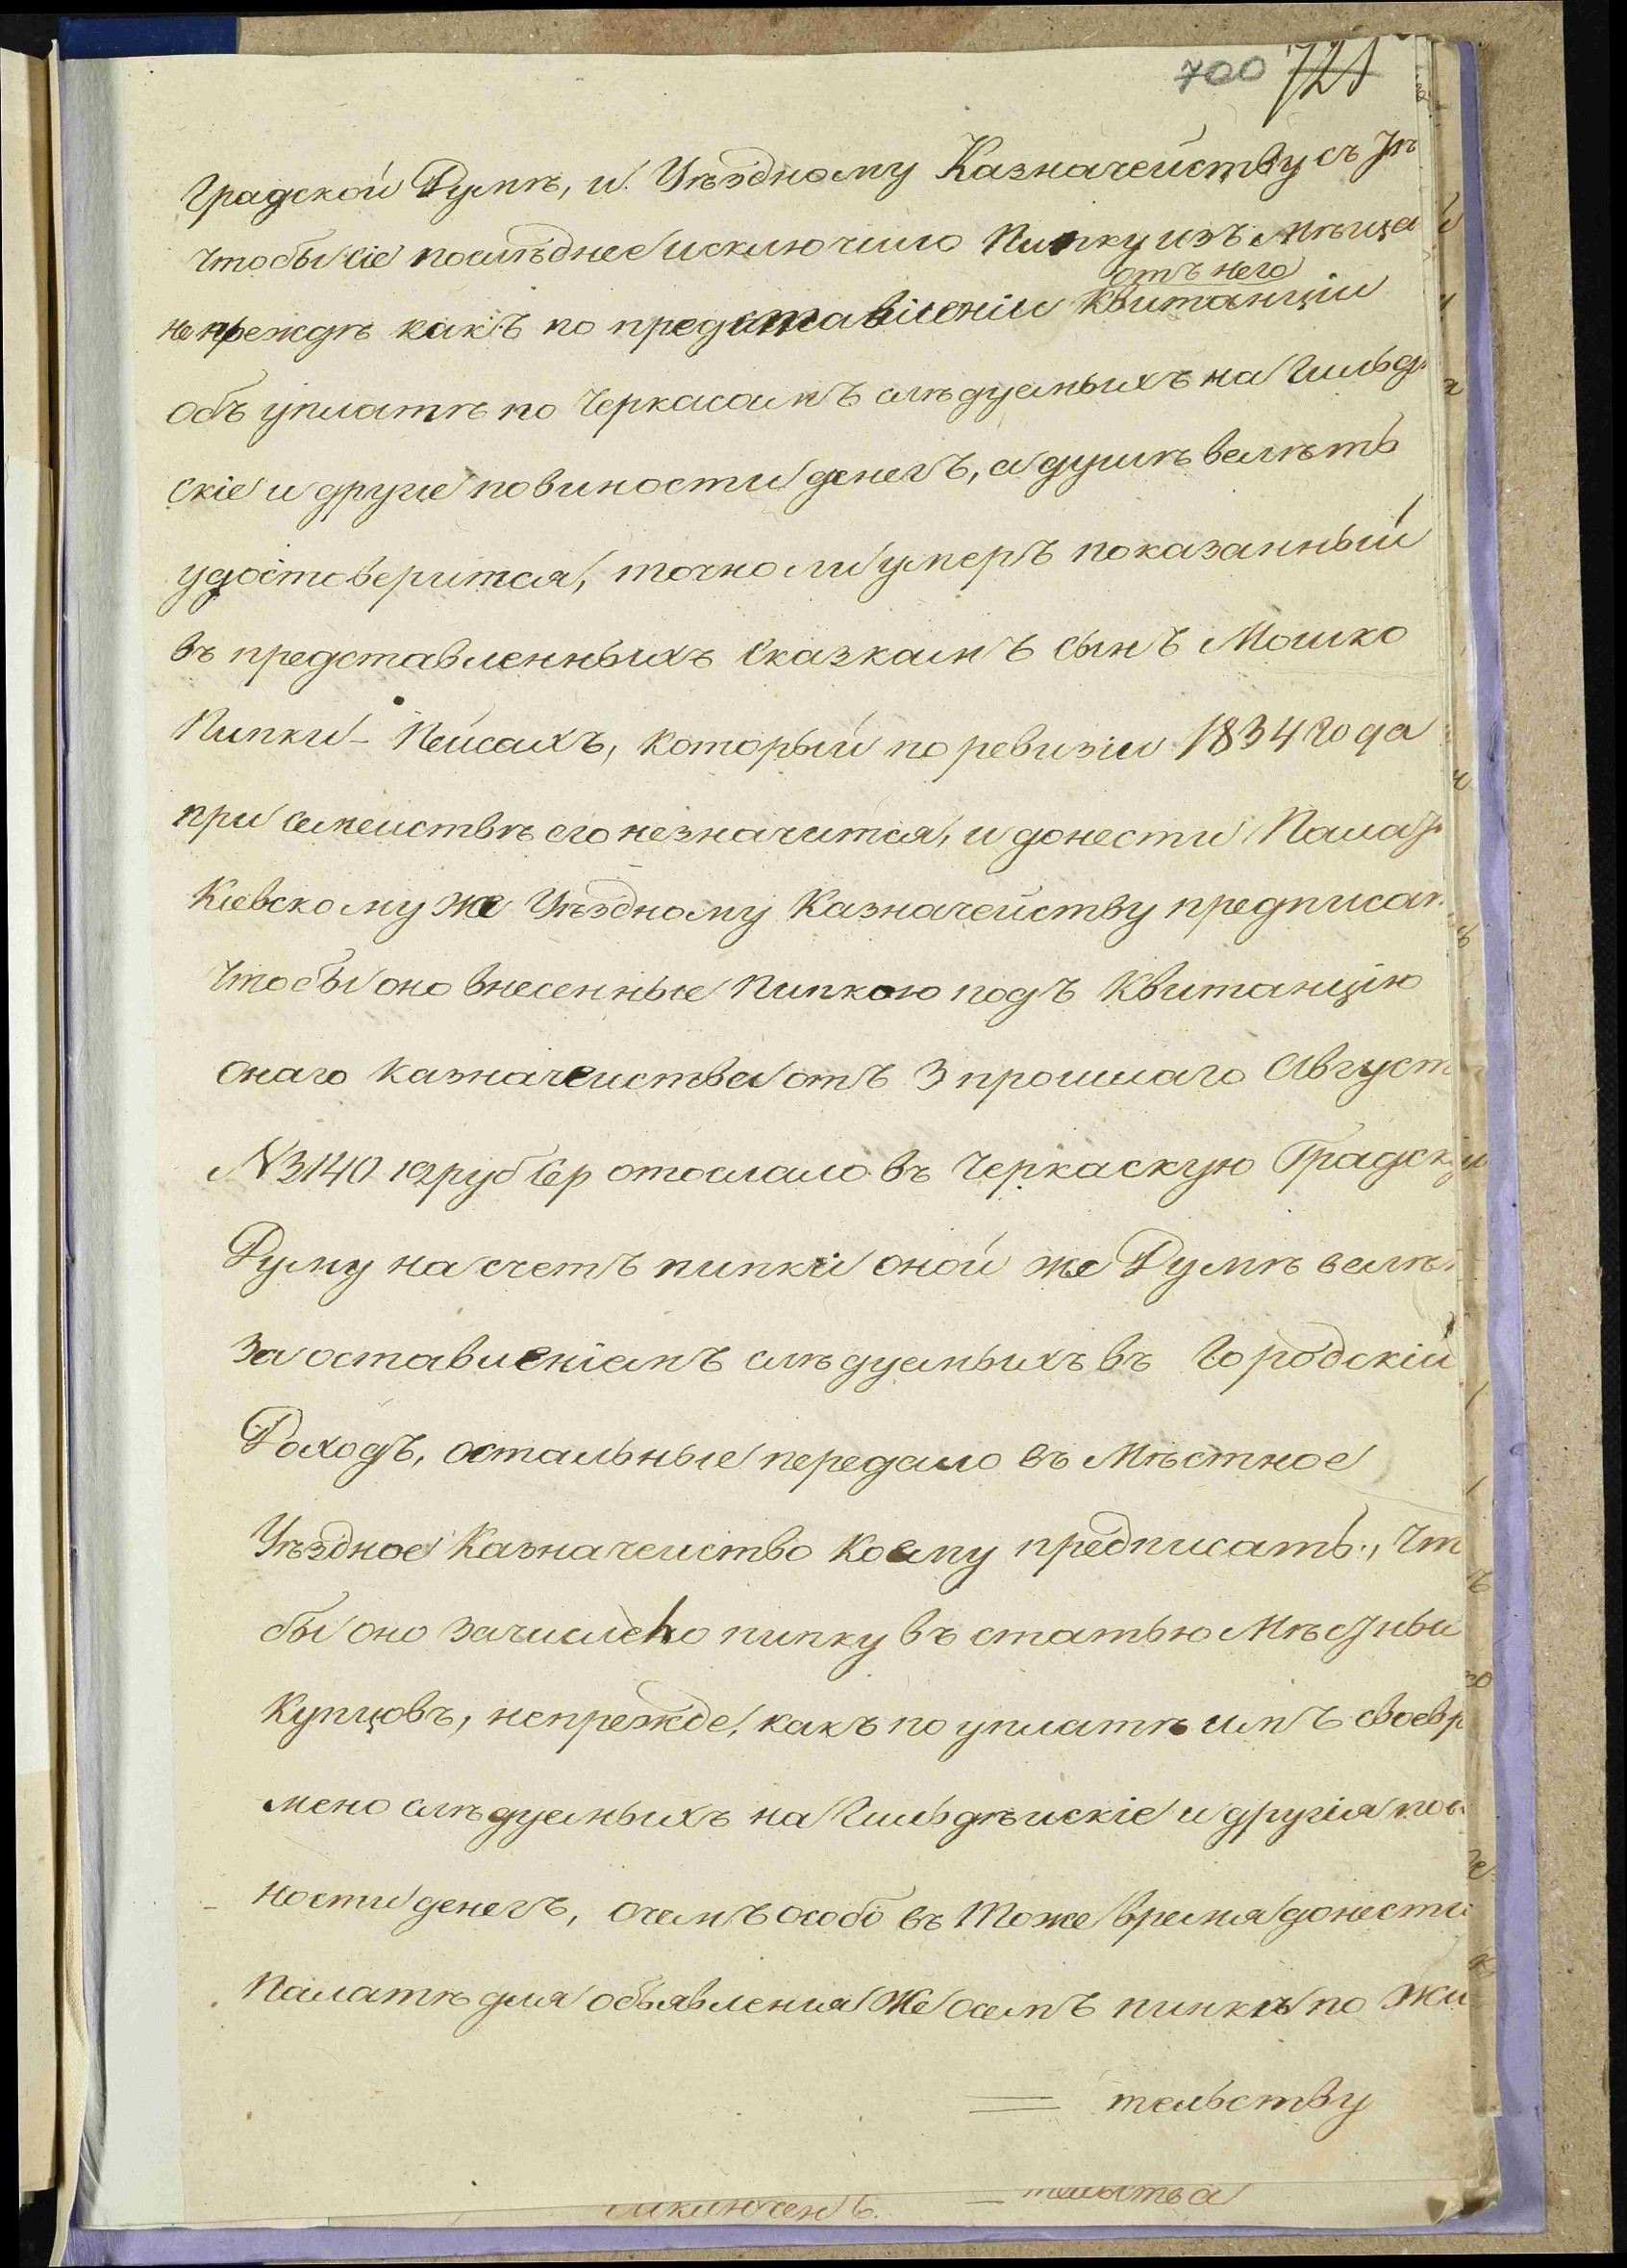 700 721
Градской Думѣ, и Уѣздному Казначейству съ тѣ
чтобы сіе послѣднее исключило Пипку изъ мѣща
отъ него
непрежде какъ по представленіи Квитанціи
объ уплатѣ по Черкасамъ слѣдуемыхъ на Гильдѣ
скіе и другіе повиности денегъ, а думѣ велѣть
удостоверится, точно ли умеръ показанный
въ представленныхъ сказкамъ сынъ Мошко
Пипки - Пейсахъ, который по ревизіи 1834 года
при семействѣ его незначится, и донести Пала
Кіевскому же Уѣздному Казначейству предписат
чтобы оно внесенные Пипкою подъ Квитанцію
онаго казначейства отъ 3 прошлаго Август
№ 3140 19 руб сер отослало въ Черкаскую Градску
Думу на счетъ пипки оной же Думѣ велѣ
за оставленіемъ слѣдуемыхъ въ городскій
Доходъ, остальные передало въ Мѣстное
Уѣздное Казначейство коему предписать, чт
бы оно зачислено пипку въ статью Мѣстны
Купцовъ, непрежде, какъ по уплатѣ имъ своевр
мено слѣдуемыхъ на Гильдѣйскіе и другія пов
ности денегъ, очемъ особо въ тоже время донести
Палатѣ для объявленія же осемъ пипкѣ по жи
тельству
исключенъ. тельства